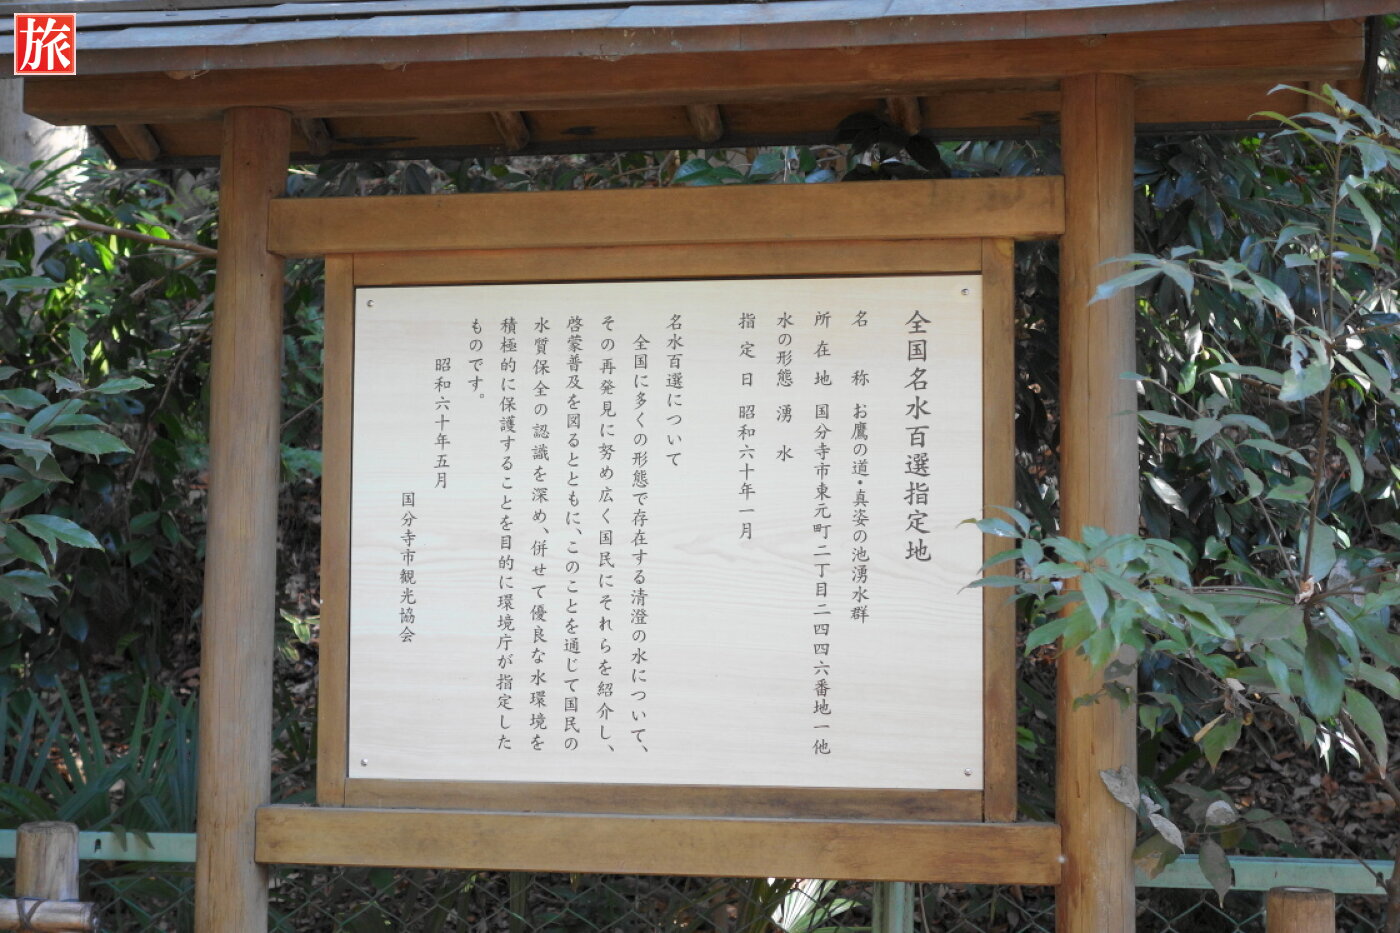 旅
全国名水百選指定地
名　称　お鷹の道・真姿の池湧水群
所在地　国分寺市東元町二丁目二四四六番地一他
水の形態　湧　水
指定日　昭和六十年一月
名水百選について
　全国に多くの形態で存在する清澄の水について、
その再発見に努め広く国民にそれらを紹介し、
啓蒙普及を図るとともに、このことを通じて国民の
水質保全の認識を深め、併せて優良な水環境を
積極的に保護することを目的に環境庁が指定した
ものです。
昭和六十年五月
国分寺市観光協会